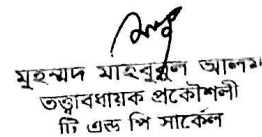 মুহম্মদ মাহবুবুল আলম
তত্ত্বাবধায়ক প্রকৌশলী
টি এন্ড পি সার্কেল